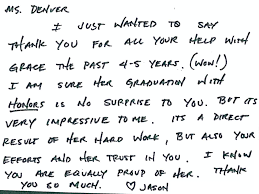 MS. DENVER
I JUST WANTED TO SAY
THANK YOU FOR ALL YOUR HELP WITH
GRACE THE PAST 4-5 YEARS. (WOW!)
I AM SURE HER GRADUATION WITH
HONORS IS NO SURPRISE TO YOU. BUT ITS
VERY IMPRESSIVE TO ME. ITS A DIRECT
RESULT OF HER HARD WORK, BUT ALSO YOUR
EFFORTS AND HER TRUST IN YOU. I KNOW
YOU ARE EQUALLY PROUD OF HER. THANK
YOU SO MUCH. ♡ JASON